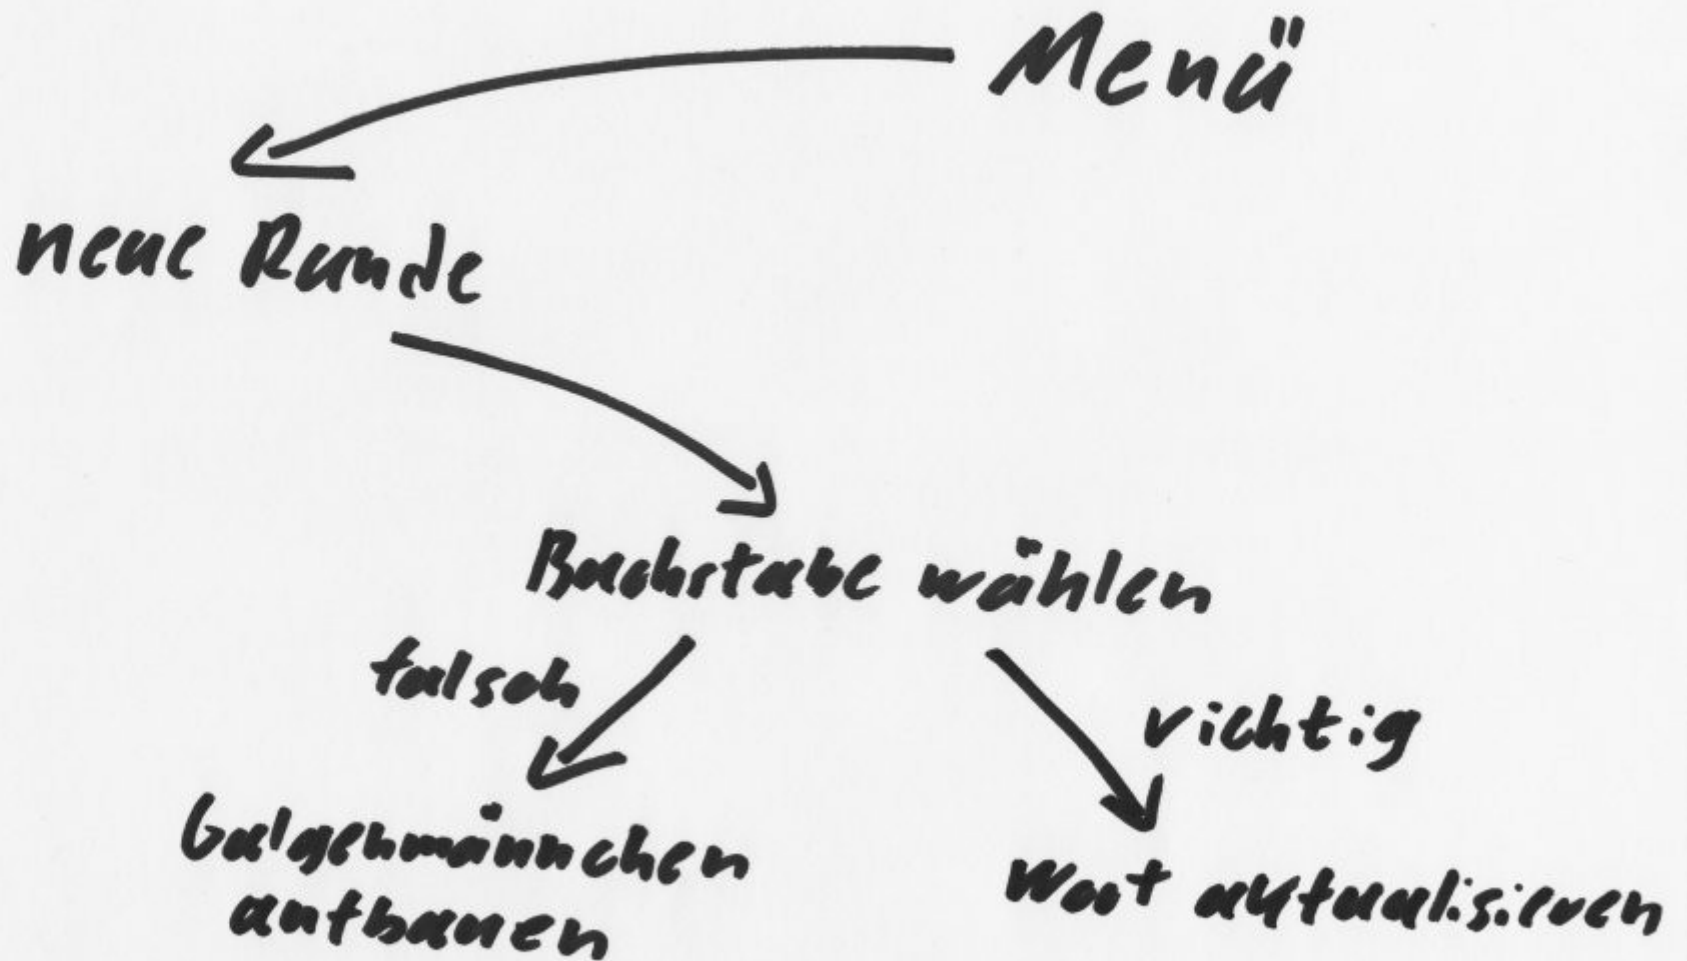 Menü
neue Runde
Buchstabe wählen
falsch
richtig
Galgenmännchen
aufbauen
Wort aktualisieren